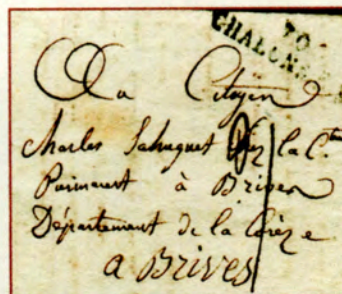 70
CHALONS
Au Citoyen
Charles Sahuguet chez la C.ne
à Brives
Département de la Corèze
a Brives